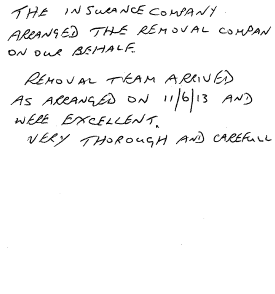 THE INSURANCE COMPANY
ARRANGED THE REMOVAL COMPAN
ON OUR BEHALF.
REMOVAL TEAM ARRIVED
AS ARRANGED ON 11/6/13 AND
WERE EXCELLENT.
VERY THOROUGH AND CAREFULL